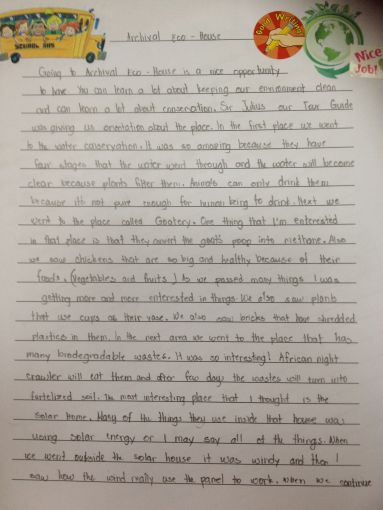 SCHOOL BUS
Good Writing!
Nice Job!
Archival Eco - House
Going to Archival Eco - House is a nice opportunity
to have. You can learn a lot about keeping our environment clean
and can learn a lot about conservation. Sir Julius our Tour Guide
was giving us orientation about the place. In the first place we went
to the water conservation. It was so amazing because they have
four stages that the water went through and the water will become
clear because plants filter them. Animals can only drink them
because it's not pure enough for human being to drink. Next we
went to the place called Goatery. One thing that I'm enterested
in that place is that they convert the goat's poop into methane. Also
we saw chickens that are so big and healthy because of their
foods. (Vegetables and fruits) As we passed many things I was
getting more and more enterested in things. We also saw plants
that use cups as their vase. We also saw bricks that have shredded
plastics in them. In the next area we went to the place that has
many biodegradable wastes. It was so interesting! African night
crawler will eat them and after few days the wastes will turn into
fertelized soil. The most interesting place that I thought is the
solar home. Many of the things they use inside that house was
using solar energy or I may say all of the things. When
we went outside the solar house it was windy and then I
saw how the wind really use the panel to work. When we continue